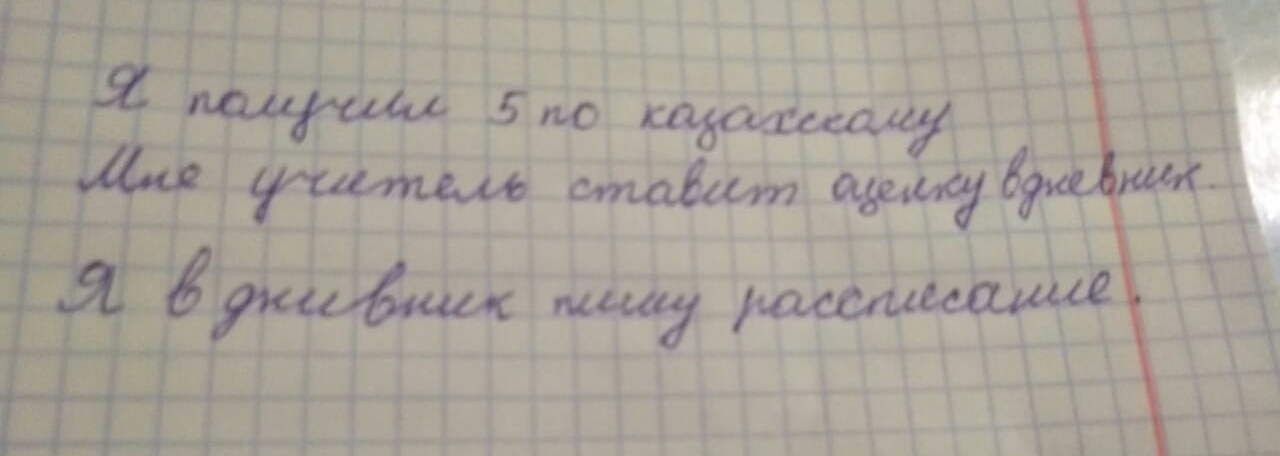 Я получил 5 по казахскому
Мне учитель ставит оценку в дневник.
Я в дневник пишу рассписание.